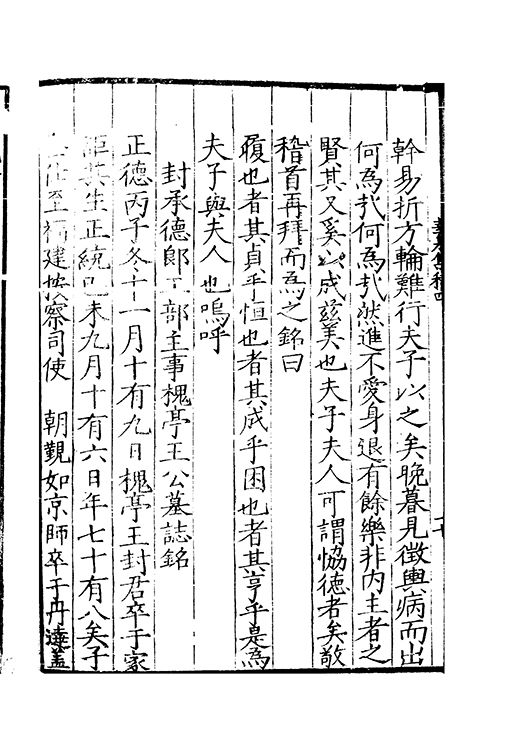 幹易折方輪難行夫子以之矣晚暮見徵輿病而出
何為於何為於然進不愛身退有餘樂非内主者之
賢其又奚以成兹美也夫子夫人可謂恊德者矣敬
稽首再拜而為之銘曰
履也者其貞乎恒也者其咸乎困也者其亨乎是為
夫子與夫人也嗚呼
封承德郎工部主事槐亭王公墓誌銘
正德丙子冬十一月十有九日槐亭王封君卒于家
距其生正統己未九月十有六日年七十有八矣子
仕至福建按察司使 朝覲如京師卒于丹